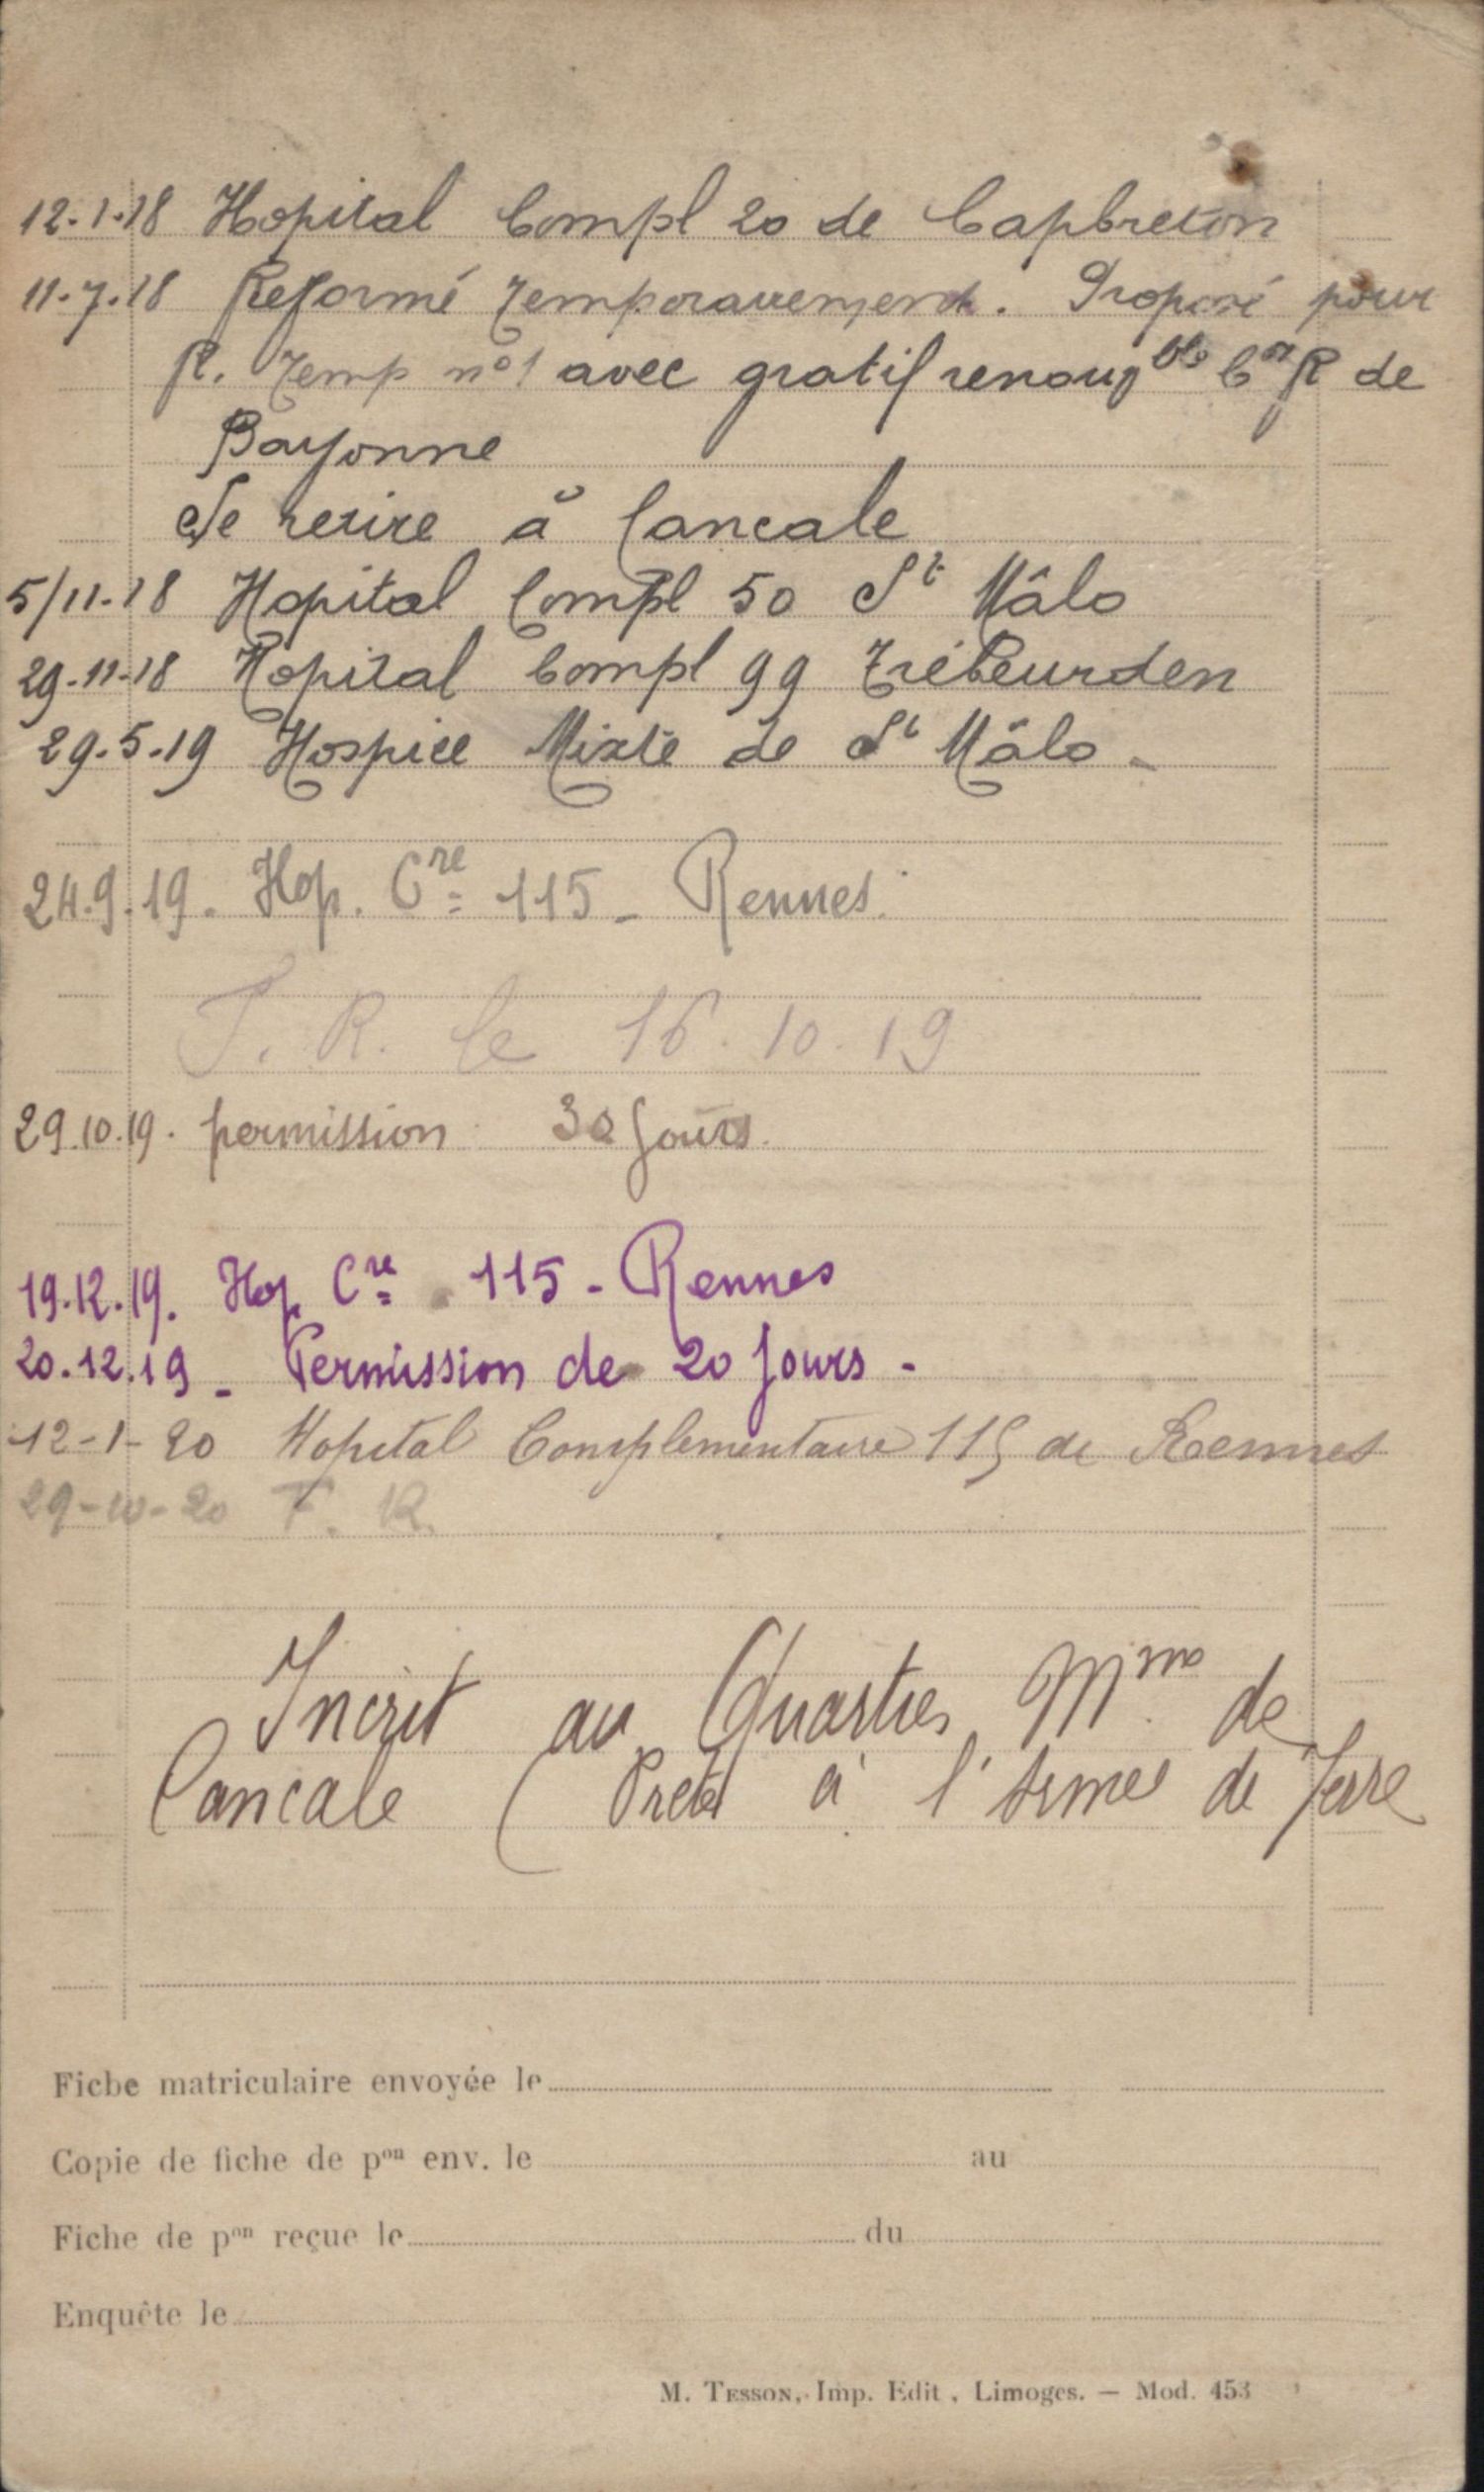 12.1.18 Hopital Compl 20 de Capbreton
11.7.18 Reformé temporairement. Proposé pour
R. Temp n°1 avec gratif renouvble Con R de
Bayonne
Se retire à Cancale
5/11.18 Hopital Compl 50 St Mâlo
29.11.18 Hopital Compl 99 Trébeurden
29.5.19 Hospice Mixte de St Mâlo -
24.9.19. Hop. Cre 115 - Rennes.
T. R. le 16.10.19
29.10.19. permission 30 Jours.
19.12.19. Hop. Cre 115 - Rennes
20.12.19 - Permission de 20 Jours -
12-1-20 Hopital Complementaire 115 de Rennes
29-10-20 F. R.
Incrit au Quartier Mme de
Cancale ( Prêté à l'Armée de Terre
Fiche matriculaire envoyée le
Copie de fiche de pon env. le au
Fiche de pon reçue le du
Enquête le
M. TESSON, Imp. Edit, Limoges. — Mod. 453